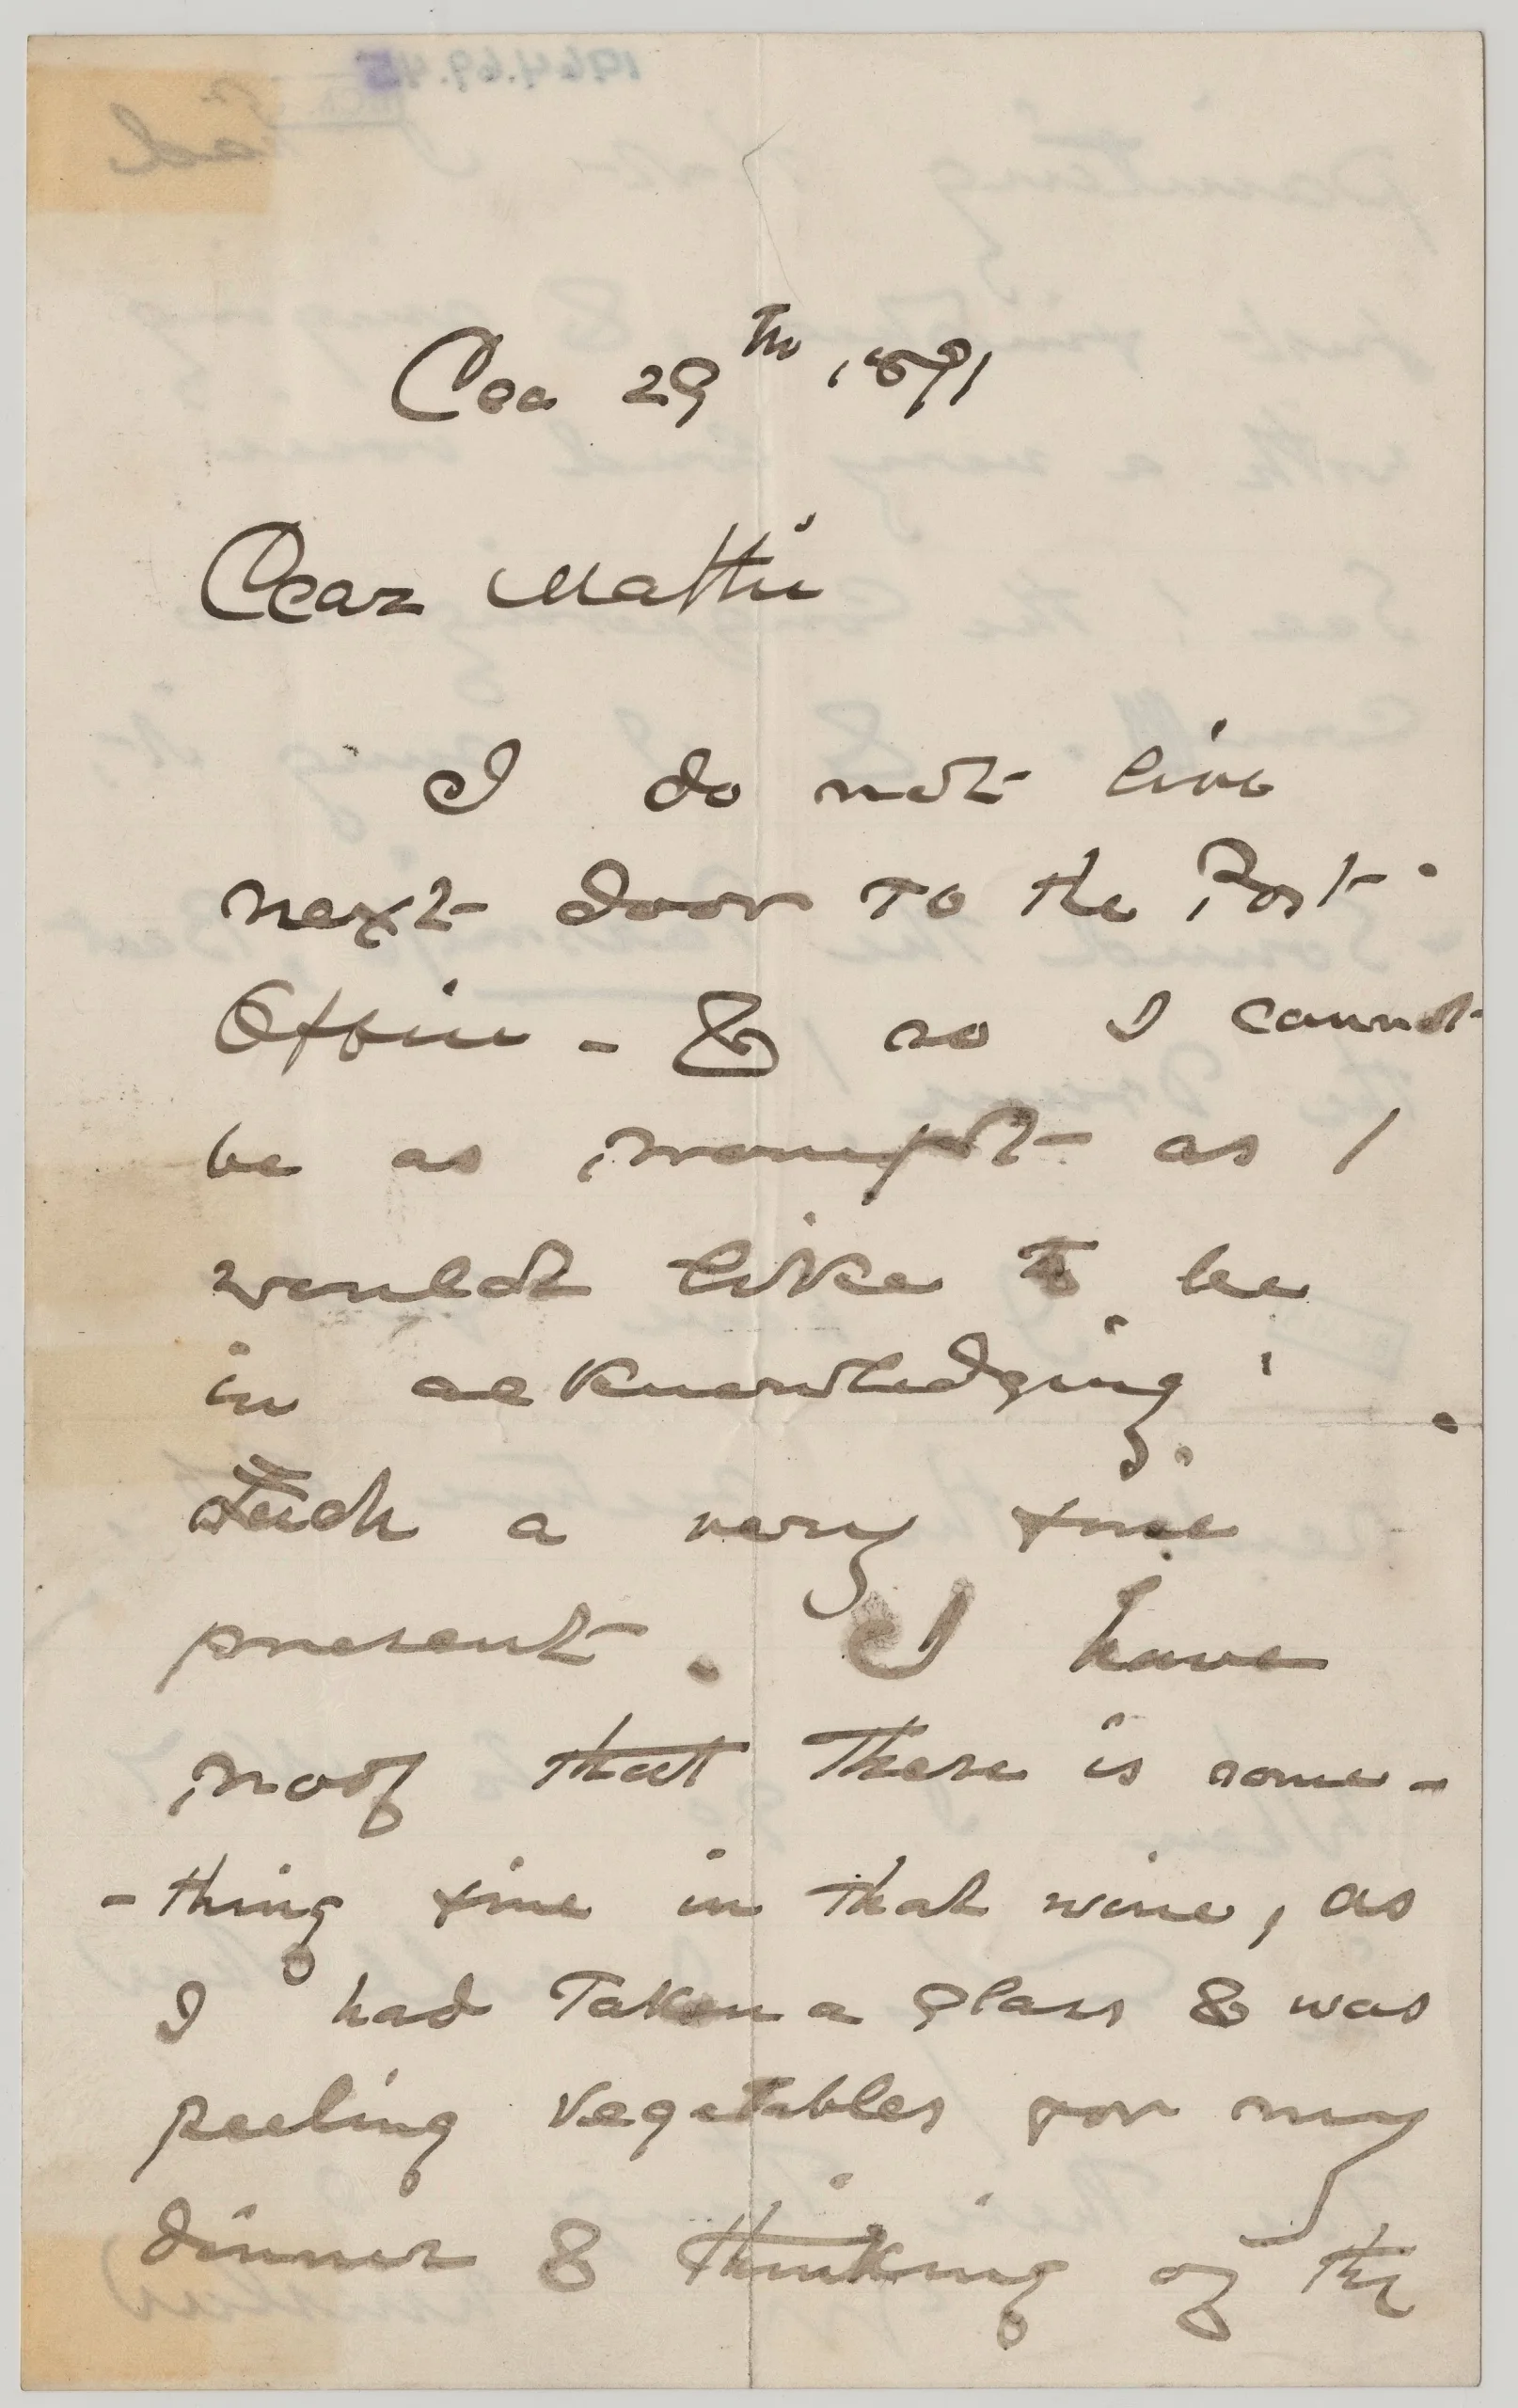 Dec 29th 1891
Dear Mattie
I do not live
next door to the Post-
Office - & so I cannot
be as prompt as I
would like to be
in acknowledging
such a very fine
present. I have
proof that there is some-
-thing fine in that wine, as
I had taken a glass & was
peeling vegetables for my
dinner & thinking of the